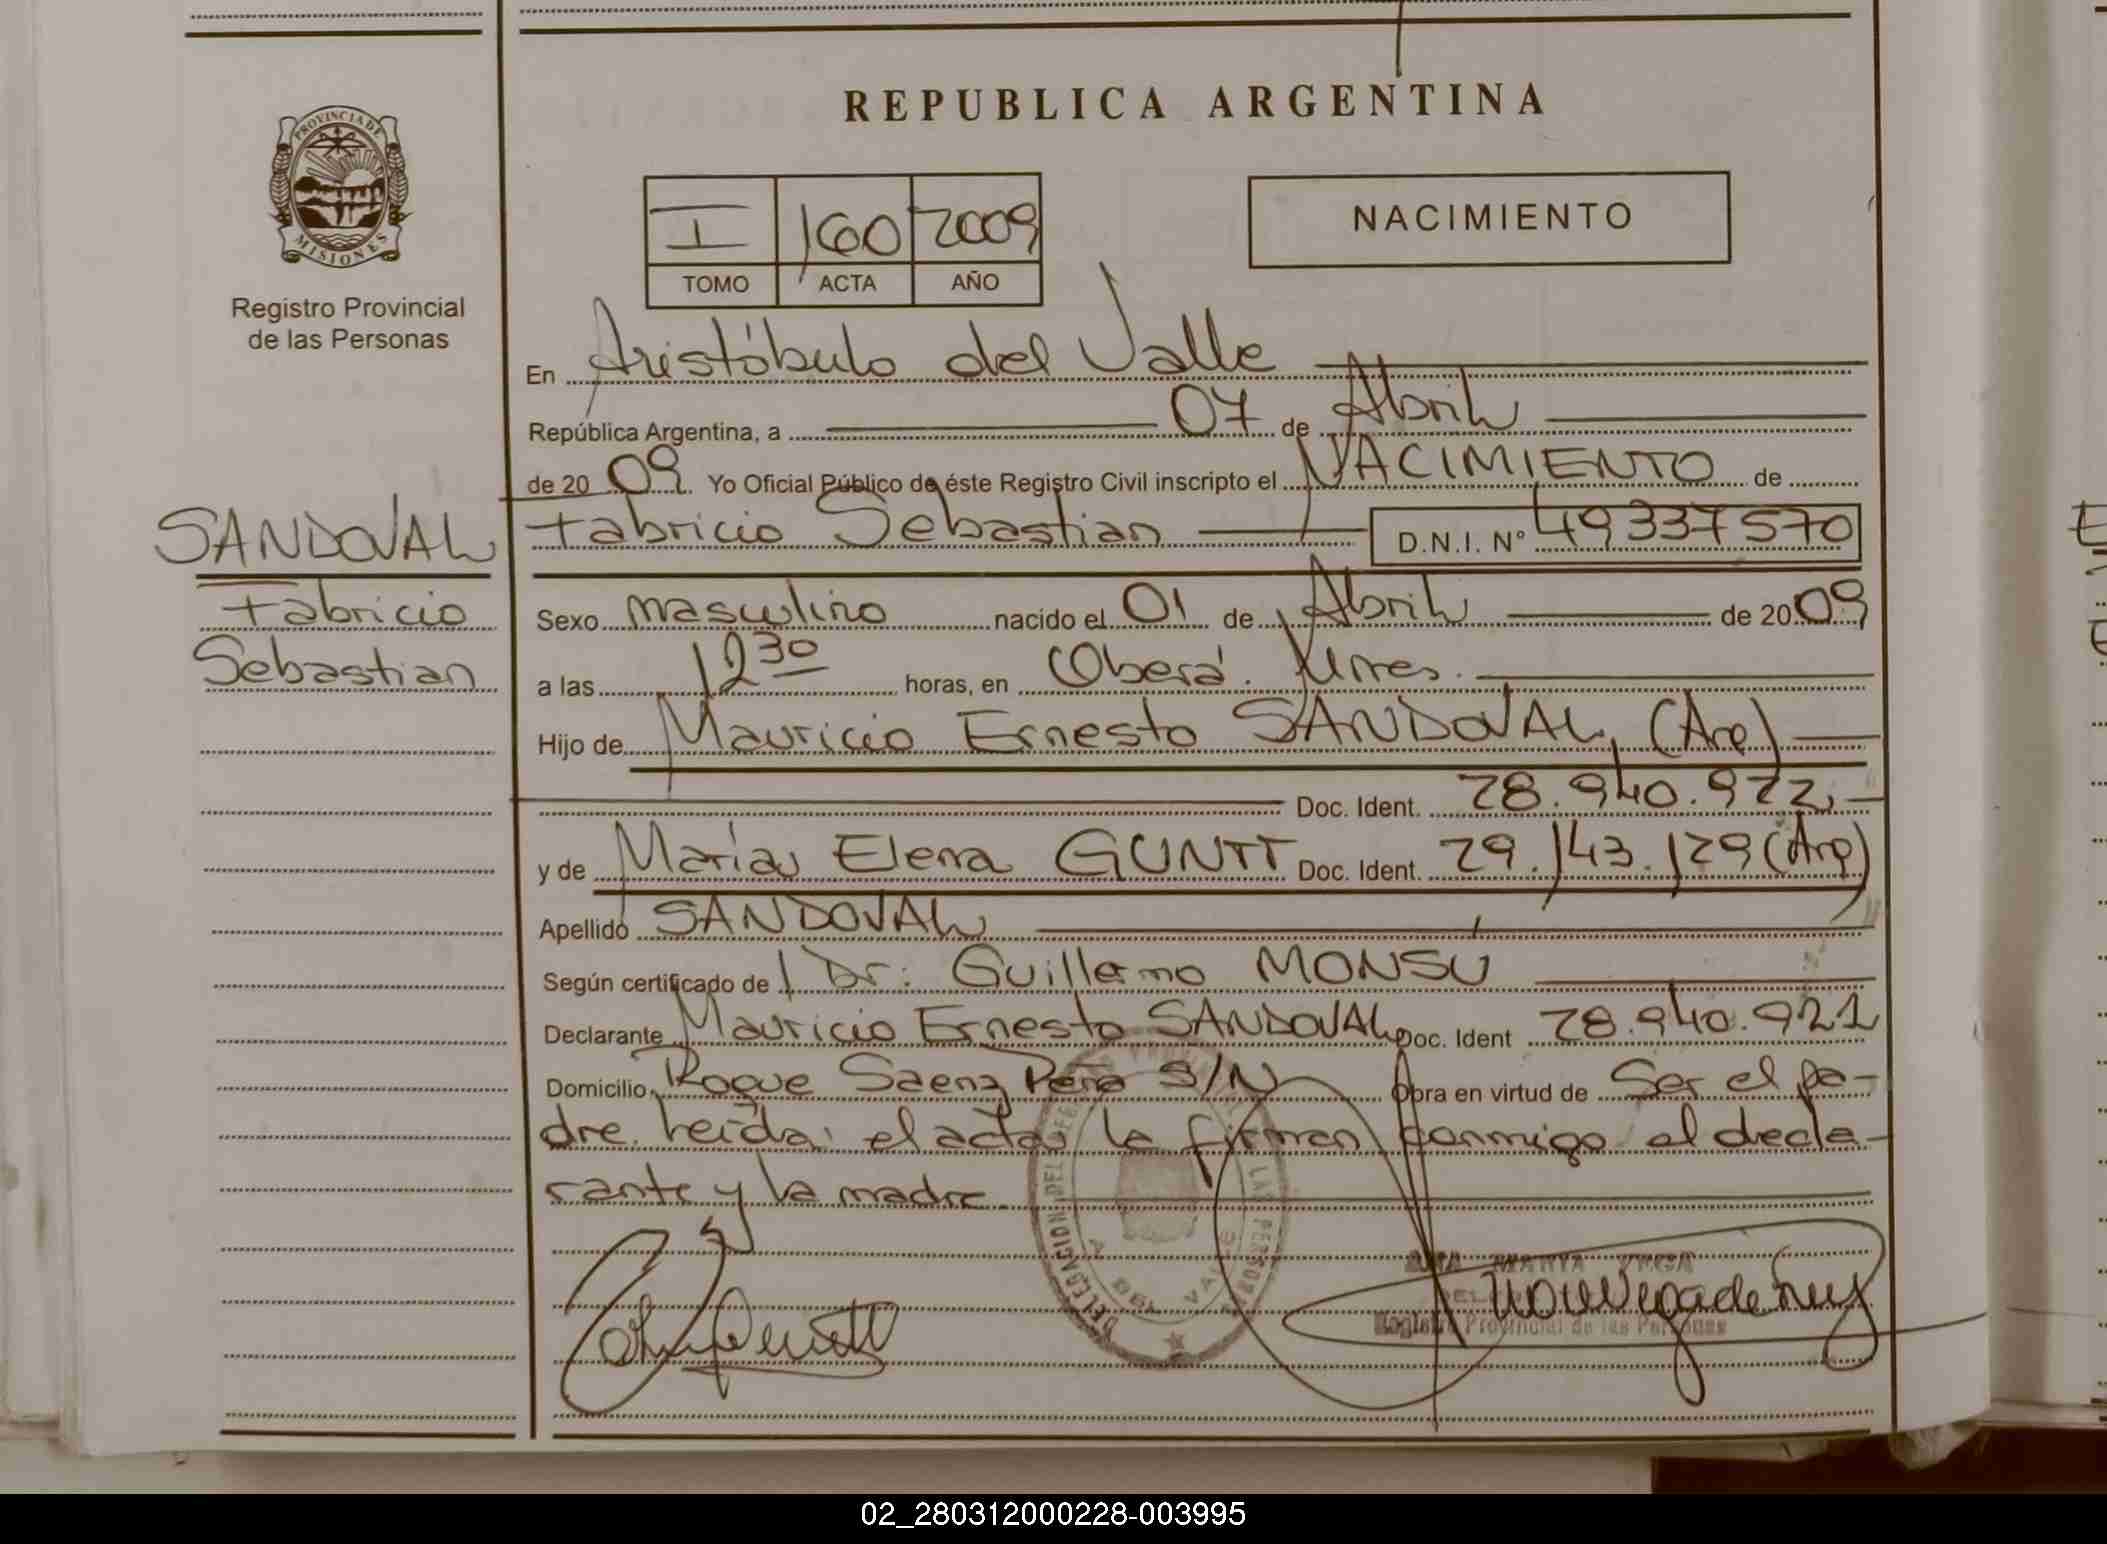 REPUBLICA ARGENTINA
PROVINCIA DE
MISIONES
Registro Provincial
de las Personas
I 160 2009
TOMO ACTA AÑO
NACIMIENTO
En Aristóbulo del Valle
República Argentina, a 07 de Abril
de 20 09 Yo Oficial Público de éste Registro Civil inscripto el NACIMIENTO de
Fabricio Sebastian D.N.I. Nº 49337570
SANDOVAL
Fabricio
Sebastian
Sexo masculino nacido el 01 de Abril de 20 09
a las 12 30 horas, en Oberá. Mnes.
Hijo de Mauricio Ernesto SANDOVAL, (Arg)
Doc. Ident. 28.940.922,
y de María Elena GUNTT Doc. Ident. 29.143.129 (Arg)
Apellido SANDOVAL
Según certificado de Dr. Guillermo MONSU
Declarante Mauricio Ernesto SANDOVAL Doc. Ident 28.940.921
Domicilio Roque Saenz Peña S/N Obra en virtud de Ser el pa-
dre. Leída el acta la firman conmigo el decla-
rante y la madre.
MARIA VEGA
Registro Provincial de las Personas
02_280312000228-003995